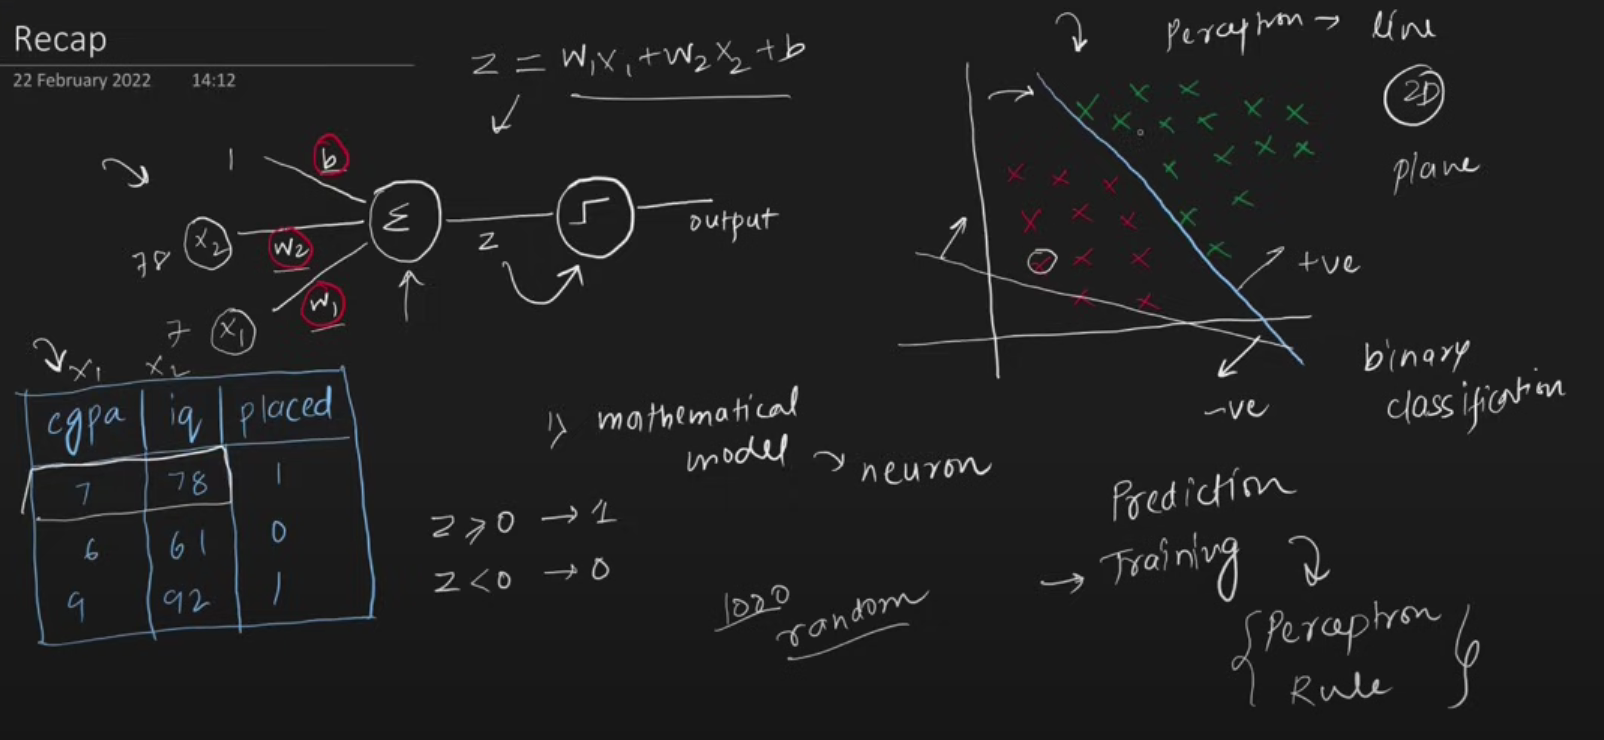 Recap
22 February 2022 14:12
z = w₁x₁ + w₂x₂ + b
1 b
78 x₂ w₂
7 x₁ w₁
Σ
z
output
x₁ x₂
cgpa iq placed
7 78 1
6 61 0
9 92 1
1) mathematical
model → neuron
z ≥ 0 → 1
z < 0 → 0
1000
random
Perceptron → line
2D
plane
+ve
-ve
binary
classification
Prediction
→ Training
{ Perceptron
Rule }